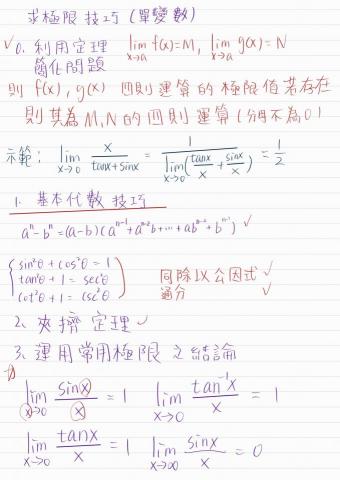 求極限技巧(單變數)
✓ 0. 利用定理 lim x→a f(x)=M, lim x→a g(x)=N
簡化問題
則 f(x), g(x) 四則運算的極限值若存在
則其為 M,N 的四則運算(分母不為0)
示範: lim x→0 x/(tanx+sinx) = 1/(lim x→0 (tanx/x + sinx/x)) = 1/2
1. 基本代數技巧
aⁿ-bⁿ=(a-b)(aⁿ⁻¹+aⁿ⁻²b+…+abⁿ⁻²+bⁿ⁻¹) ✓
sin²θ+cos²θ=1
tan²θ+1=sec²θ 同除以公因式 ✓
cot²θ+1=csc²θ 通分 ✓
2. 夾擠定理 ✓
3. 運用常用極限之結論
lim x→0 sin(x)/(x) = 1 lim x→0 tan⁻¹x/x = 1
lim x→0 tanx/x = 1 lim x→∞ sinx/x = 0